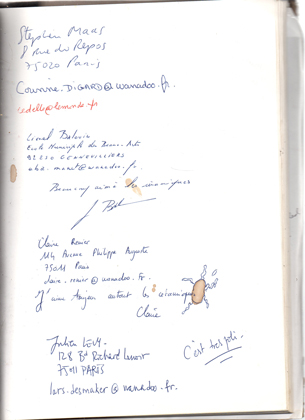 Stephen Maas
8 Rue du Repos
75020 Paris
Corinne.DIGARD@wanadoo.fr.
Lionel
Ecole Municipale des Beaux-Arts
92230 GENNEVILLIERS
Beaucoup aimé les céramiques
Claire Renier
114 Avenue Philippe Auguste
75011 Paris
claire.renier@wanadoo.fr.
J'aime toujours autant les céramiques
Claire
Julien LEVY.
128 Bd Richard Lenoir
75011 PARIS
lars.desmaker@wanadoo.fr.
C'est très joli.